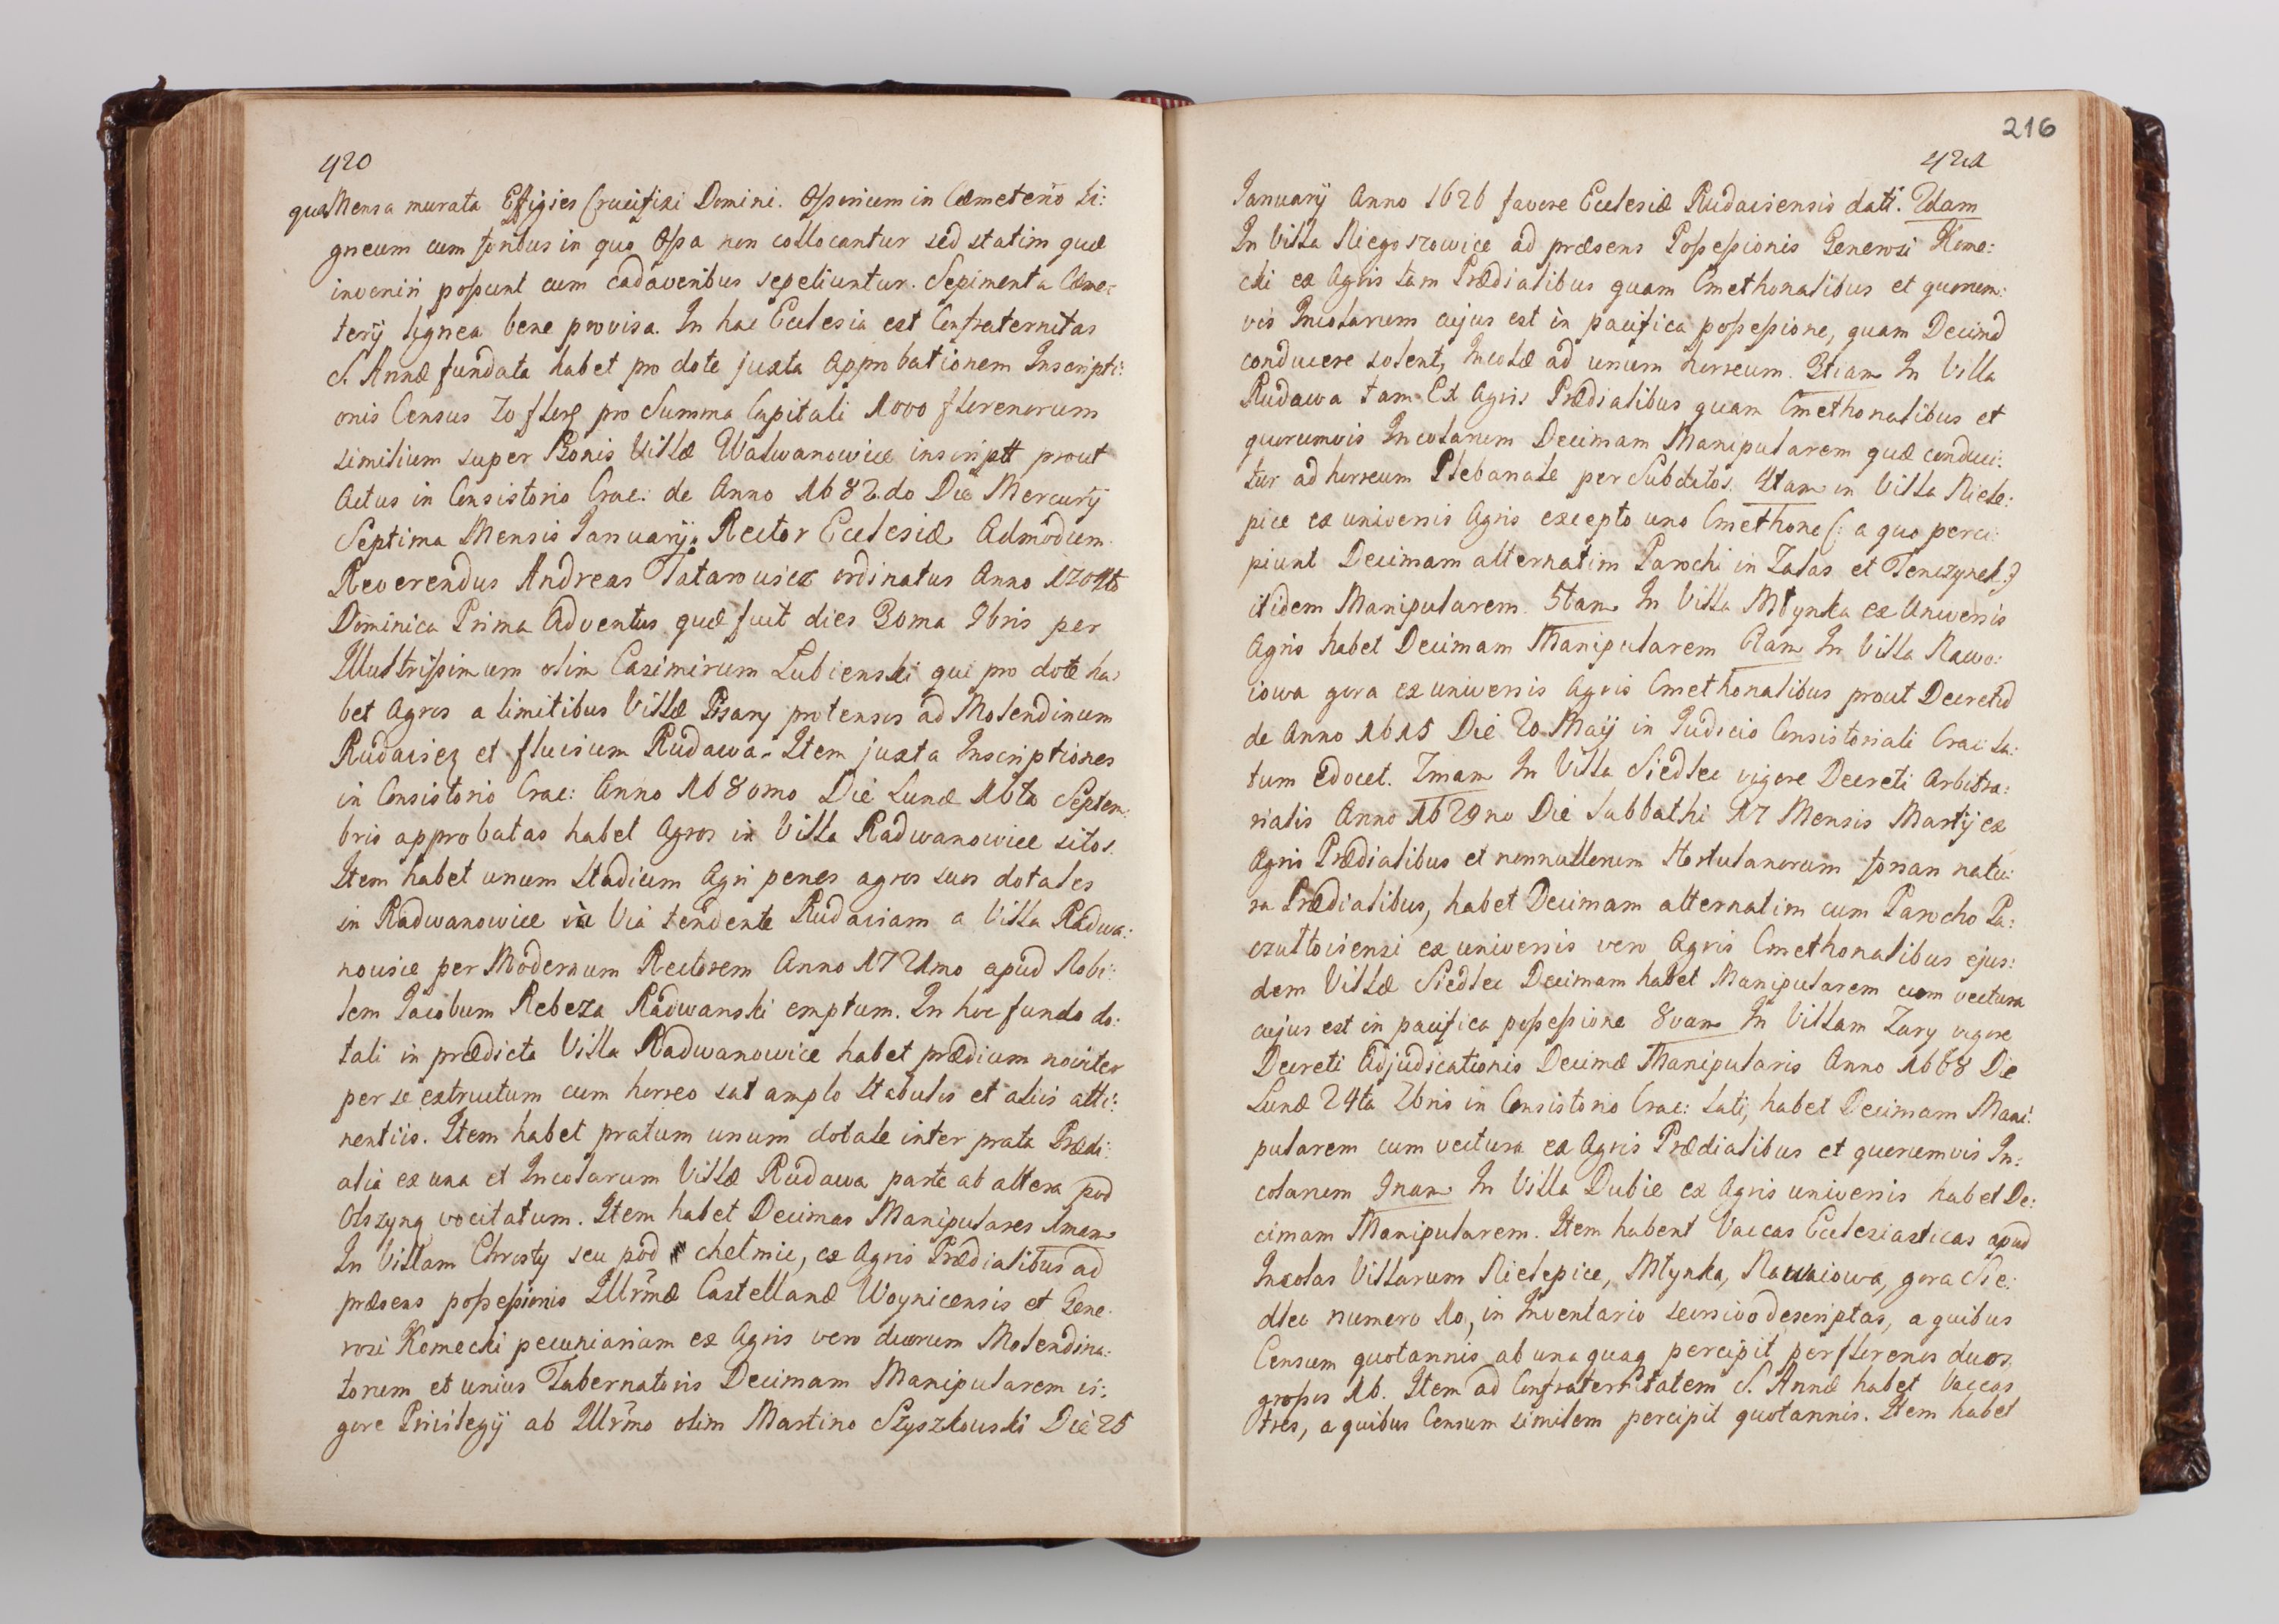 420
qua Mensa murata Effigies Crucifixi Domini. Ossorium in Cæmeterio Li:
gneum cum foribus in quo Ossa non collocantur sed statim quæ
inveniri possunt cum cadaveribus sepeliuntur. Sepimenta Cæme:
terij lignea bene provisa. In hac Ecclesia est Confraternitas
S. Annæ fundata habet pro dote juxta Approbationem Inscripti:
onis Census 70 flor pro Summa Capitali 1000 florenorum
similium super Bonis Villæ Walwanowice inscriptt prout
Actus in Consistorio Crac: de Anno 1682do Die Mercurij
Septima Mensis Januarij. Rector Ecclesiæ Admodum
Reverendus Andreas Tatarowicz ordinatus Anno 1704to
Dominica Prima Adventus quæ fuit dies 30ma 9bris per
Illustrissimum olim Casimirum Lubienski qui pro dote ha:
bet Agros a limitibus Villæ Pisary protensos ad Molendinum
Rudaviez et fluvium Rudawa. Item juxta Inscriptiones
in Consistorio Crac: Anno 1680mo Die Lunæ 16ta Septem:
bris approbatas habet Agros in Villa Radwanowice sitos.
Item habet unum Stadium Agri penes agros suos dotales
in Radwanowice in Via tendente Rudaviam a Villa Radwa:
nowice per Modernum Rectorem Anno 1721mo apud Nobi:
lem Jacobum Rebeza Radwanski emptum. In hoc fundo do:
tali in prædicta Villa Radwanowice habet prædium noviter
per se extructum cum horreo sat amplo Stabulis et aliis atti:
nentiis. Item habet pratum unum dotale inter prata Prædi:
alia ex una et Incolarum Villæ Rudawa parte ab altera pod
Olszyną vocitatum. Item habet Decimas Manipulares 1mam
In Villam Chrosty seu pod chelmie, ex Agris Prædialibus ad
præsens possessionis Illrmæ Castellanæ Woynicensis et Gene:
rosi Komecki pecuniariam ex Agris vero duorum Molendina:
torum et unius Tabernatoris Decimam Manipularem vi:
gore Privilegij ab Illrmo olim Martino Szyszkowski Die 25
216
421
Januarij Anno 1626 favore Ecclesiæ Rudaviensis dati. 2dam
In Villa Niegoszowice ad præsens Possessionis Generosi Kome:
cki ex Agris tam Prædialibus quam Cmethonalibus et quorum:
vis Incolarum cujus est in pacifica possessione, quam Decimã
conducere solent, Incolæ ad unum horreum. 3tiam In Villa
Rudawa tam Ex Agris Prædialibus quam Cmethonalibus et
quorumvis Incolarum Decimam Manipularem quæ conduci:
tur ad horreum Plebanale per Subditos. 4tam in Villa Niele:
pice ex universis Agris excepto uno Cmethone (: a quo perci:
piunt Decimam alternatim Parochi in Zalas et Tenczynek :)
itidem Manipularem. 5tam In Villa Młynka ex Universis
Agris habet Decimam Manipularem 6tam In Villa Nawo:
iowa gora ex universis Agris Cmethonalibus prout Decretũ
de Anno 1615 Die 20 Maij in Judicio Consistoriali Crac La:
tum edocet. 7mam In Villa Siedlec vigore Decreti Arbitra:
rialis Anno 1629no Die Sabbathi 17 Mensis Martij ex
Agris Prædialibus et nonnullorum Hortulanorum forsan natu:
ra Prædialibus, habet Decimam alternatim cum Parocho Pa:
czułtoviensi ex universis vero Agris Cmethonalibus ejus:
dem Villæ Siedlec Decimam habet Manipularem cum vectura
cujus est in pacifica possessione 8vam In Villam Zary vigore
Decreti Adjudicationis Decimæ Manipularis Anno 1668 Die
Lunæ 24ta 7bris in Consistorio Crac: Lati, habet Decimam Mani:
pularem cum vectura ex Agris Prædialibus et quorumvis In:
colarum 9nam In Villa Dubie ex Agris universis habet De:
cimam Manipularem. Item habent Vaccas Ecclesiasticas apud
Incolas Villarum Nielepice, Młynka, Nawaiowa, gora Sie:
dlec numero 10, in Inventario seorsivo descriptas, a quibus
Censum quotannis ab una quaq percipit per florenos duos,
grossos 16. Item ad Confraternitatem S. Annæ habet Vaccas
tres, a quibus Censum similem percipit quotannis. Item habet